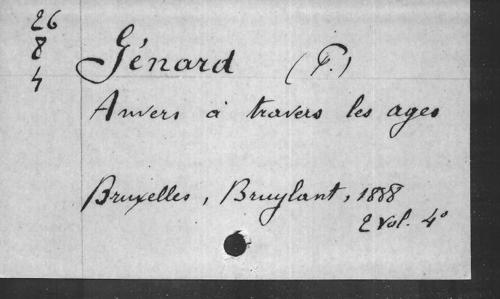 26
8
4
Génard (P.)
Anvers à travers les ages
Bruxelles, Bruylant, 1888
2 vol. 4°